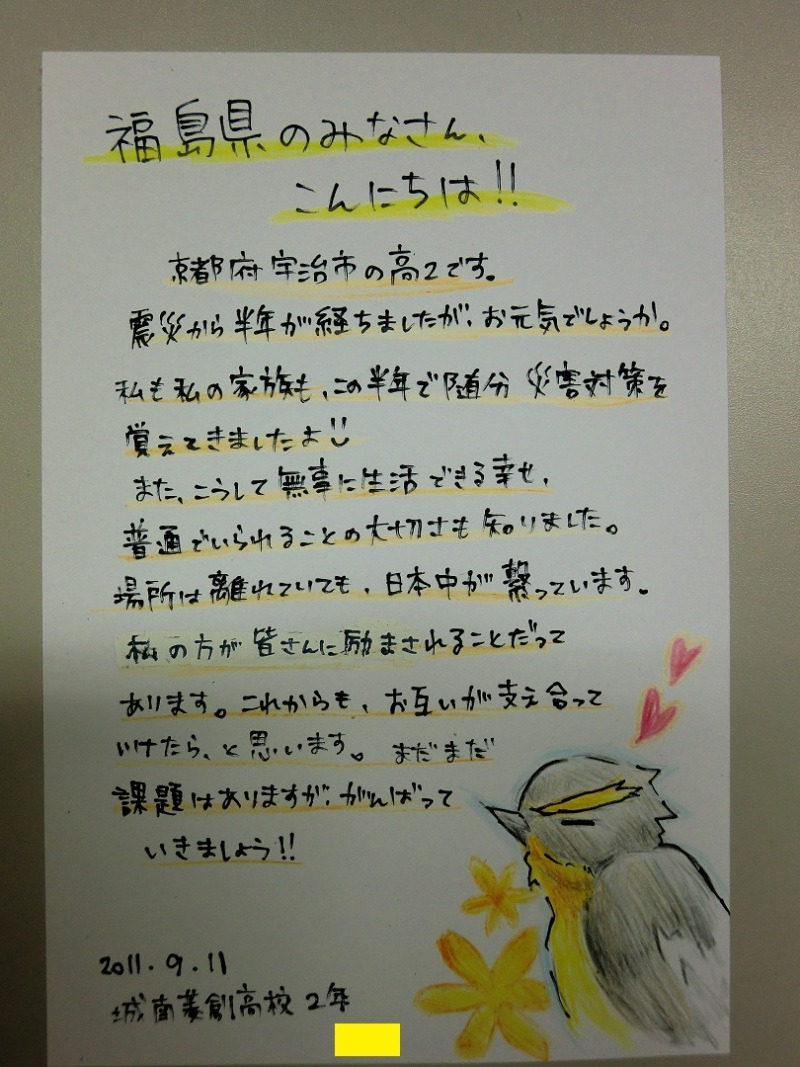 福島県のみなさん、
こんにちは!!
京都府宇治市の高2です。
震災から半年が経ちましたが、お元気でしょうか。
私も私の家族も、この半年で随分 災害対策を
覚えてきましたよ
また、こうして無事に生活できる幸せ、
普通でいられることの大切さも知りました。
場所は離れていても、日本中が繋っています。
私の方が皆さんに励まされることだって
あります。これからも、お互いが支え合って
いけたら、と思います。まだまだ
課題はありますが、がんばって
いきましょう!!
2011.9.11
城南菱創高校2年